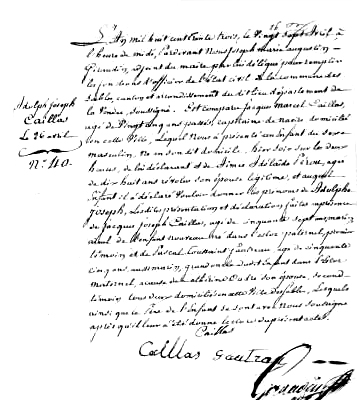 L'An mil huit cent trente trois, le Vingt Sept Avril à
l'heure de midi, Pardevant Nous Joseph Marie augustin
Girandin, adjoint du maire, par lui délégué pour remplir
les fonctions d'officier de l'état civil de la commune des
Sables, canton et arrondissement du dit lieu département de la
Vendée, soussigné. Est comparu Jacques Marcel Caillas,
Adolph Joseph
Caillas
Le 26 avril
N.° 40.
agé de Vingt cinq ans passés, capitaine de navire domicilié
en cette Ville, Lequel Nous a présenté un Enfant du Sexe
masculin, né en son dit domicile hier soir sur les deux
heures, de lui déclarant et de Aimée Adélaïde
age de dix huit ans révolus son épouse légitime, et auquel
Enfant il a déclaré Vouloir donner les prénoms de Adolphe
Joseph, Lesdites présentation et déclaration faites en présence
de Jacques Joseph Caillas, agé de cinquante Sept
de l'enfant nouveau né dans l'estoc paternel, premier
témoin et de Toussaint agé de cinquante
cinq ans, dudit Enfant dans l'estoc
maternel, à cause de son épouse, second
témoin tous deux domiciliés en cette Ville des Sables, Lesquels
ainsi que le Père de l'Enfant se sont avec Nous Soussignés
après qu'il leur a été donné lecture du présent acte.
Caillas
Caillas Gautrau